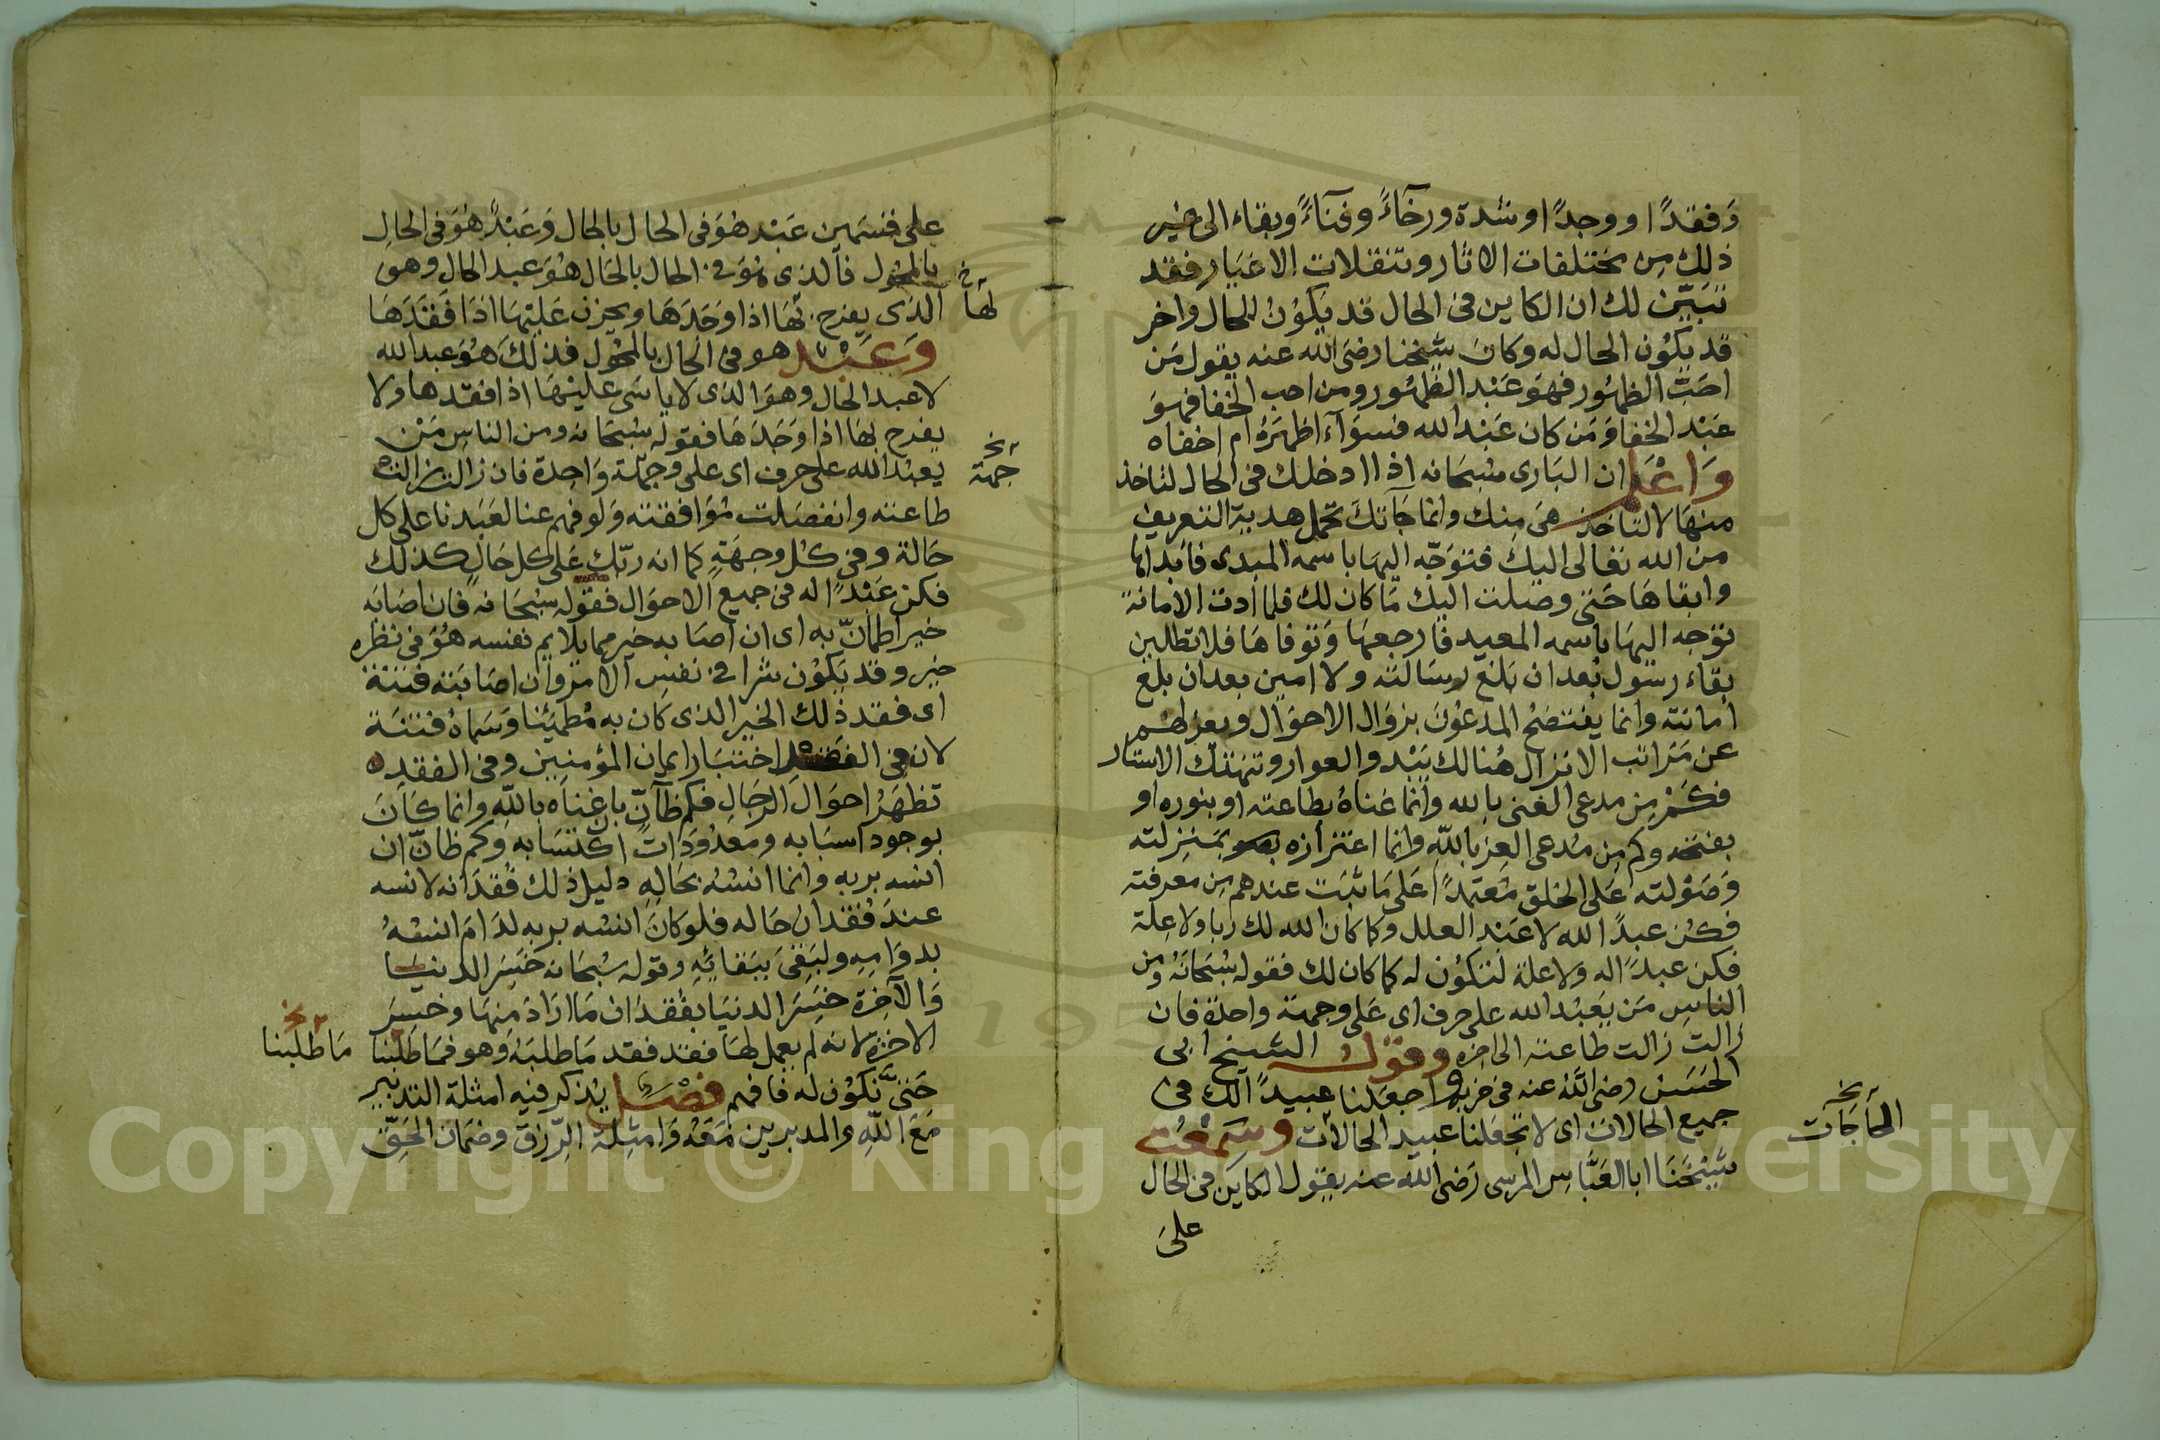 وفقدًا ووجدًا وشدة ورخآءً وفنآءً وبقاء الى غير
ذلك من مختلفات الاثار وتنقلات الاغيار فقد
تبيّن لك ان الكاين فى الحال قد يكون للحال واخر
قد يكون الحال له وكان شيخنا رضى الله عنه يقول من
احب الظهور فهو عبد الظهور ومن احب الخفا فهو
عبد الخفا ومن كان عبد الله فسوآء اظهره ام اخفاه
واعلم ان البارى سبحانه اذا ادخلك فى الحال لتاخذ
منها لا لتاخذ هى منك وانما جآتك تحمل هدية التعريف
من الله تعالى اليك فتوجّه اليها باسمه المبدى فابداها
وابقاها حتى وصلت اليك ما كان لك فلما ادت الامانة
توجه اليها باسمه المعيد فارجعها وتوفاها فلا تطلبن
بقاء رسول بعد ان بلغ رسالته ولا امين بعد ان بلغ
امانته وانما يفتضح المدعون بزوال الاحوال وبعزلهم
عن مراتب الانزال هنالك يبدو العوار وتنهتك الاستار
فكم من مدعى الغنى بالله وانما غناه بطاعته او بنوره او
بفتحه وكم من مدعى العز بالله وانما اعتزازه بمنزلته
وصولته على الخلق معتمدًا على ما ثبت عندهم من معرفته
فكن عبدًا لله لا عبد العلل وكما كان الله لك ربا ولا علة
فكن عبدًا له ولا علة لتكون له كما كان لك فقوله سبحانه ومن
الناس من يعبد الله على حرف اى على وجهة واحدة فان
زالت زالت طاعته الى اخره وقول الشيخ ابى
الحسن رضى الله عنه فى حزبه واجعلنا عبيدًا لك فى
جميع الحالات اى لا تجعلنا عبيد الحالات وسمعت
شيخنا ابا العباس المرسى رضى الله عنه يقول الكاين فى الحال
على
نخ
الحاجات
على قسمين عبد هو فى الحال بالحال وعبدٌ هو فى الحال
بالمحول فالذى هو فى الحال بالحال هو عبد الحال وهو
الذى يفرح بها اذا وجدها ويحزن عليها اذا فقدها
وعبد هو فى الحال بالمحول فذلك هو عبد الله
لا عبد الحال وهو الذى لا ياسى عليها اذا فقدها ولا
يفرح بها اذا وجدها فقوله سبحانه ومن الناس من
يعبد الله على حرف اى على وجهة واحدة فان زالت زالت
طاعته وانفصلت موافقته ولو فهم عنا لعبدنا على كل
حالة وفى كل وجهة كما انه ربّك على كل حال كذلك
فكن عبدًا له فى جميع الاحوال فقوله سبحانه فان اصابه
خير اطمانّ به اى ان اصابه خير مما يلايم نفسه هو فى نظره
خير وقد يكون شرا فى نفس الامر وان اصابته فتنة
اى فقد ذلك الخير الذى كان به مطمينا وسماه فتنة
لان فى الفقد اختبار ايمان المؤمنين وفى الفقد
تظهر احوال الرجال فكم ظآنّ بان غناه بالله وانما كان
بوجود اسبابه ومعدودات اكتسابه وكم ظانّ ان
انسه بربه وانما انسه بحاله دليل ذلك فقدانه لانسه
عند فقدان حاله فلو كان انسه بربه لدام انسه
بدوامه ولبقى ببقائه وقوله سبحانه خسر الدنيا
والآخرة خسر الدنيا بفقدان ما اراد منها وخسر
الاخرة لانه لم يعمل لها فقد فقد ما طلبه وهو فما طلبنا
حتى نكون له فافهم فصل يذكر فيه امثلة التدبير
مع الله والمدبرين معه وامثلة الرّزق وضمان الحق
نخ
لها
نخ
جهة
نخ
ما طلبنا
Copyright © King University
195